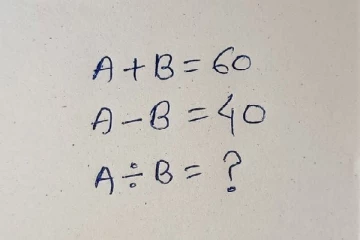 A + B = 60
A - B = 40
A ÷ B = ?